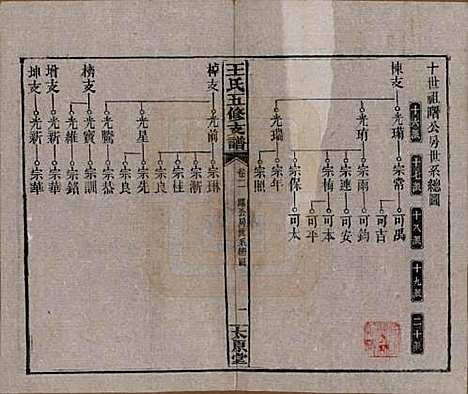 十世祖曙公房世系總圖
十六派 十七派 十八派 十九派 二十派
棟支 光瑀 宗常 可禹
可吉
光珛 宗雨 可鈞
宗連 可安
可平
光瑞 宗保 可大
宗熙
王氏五修支譜
卷二 曙公房世系總圖 一
太原堂
梓支 光前 宗琳
宗漸
宗桂
光星 宗先
宗良
光騰 宗良
宗恭
榜支 光寶 宗訓
光維 宗銘
增支 光新 宗華
坤支 光新 宗華